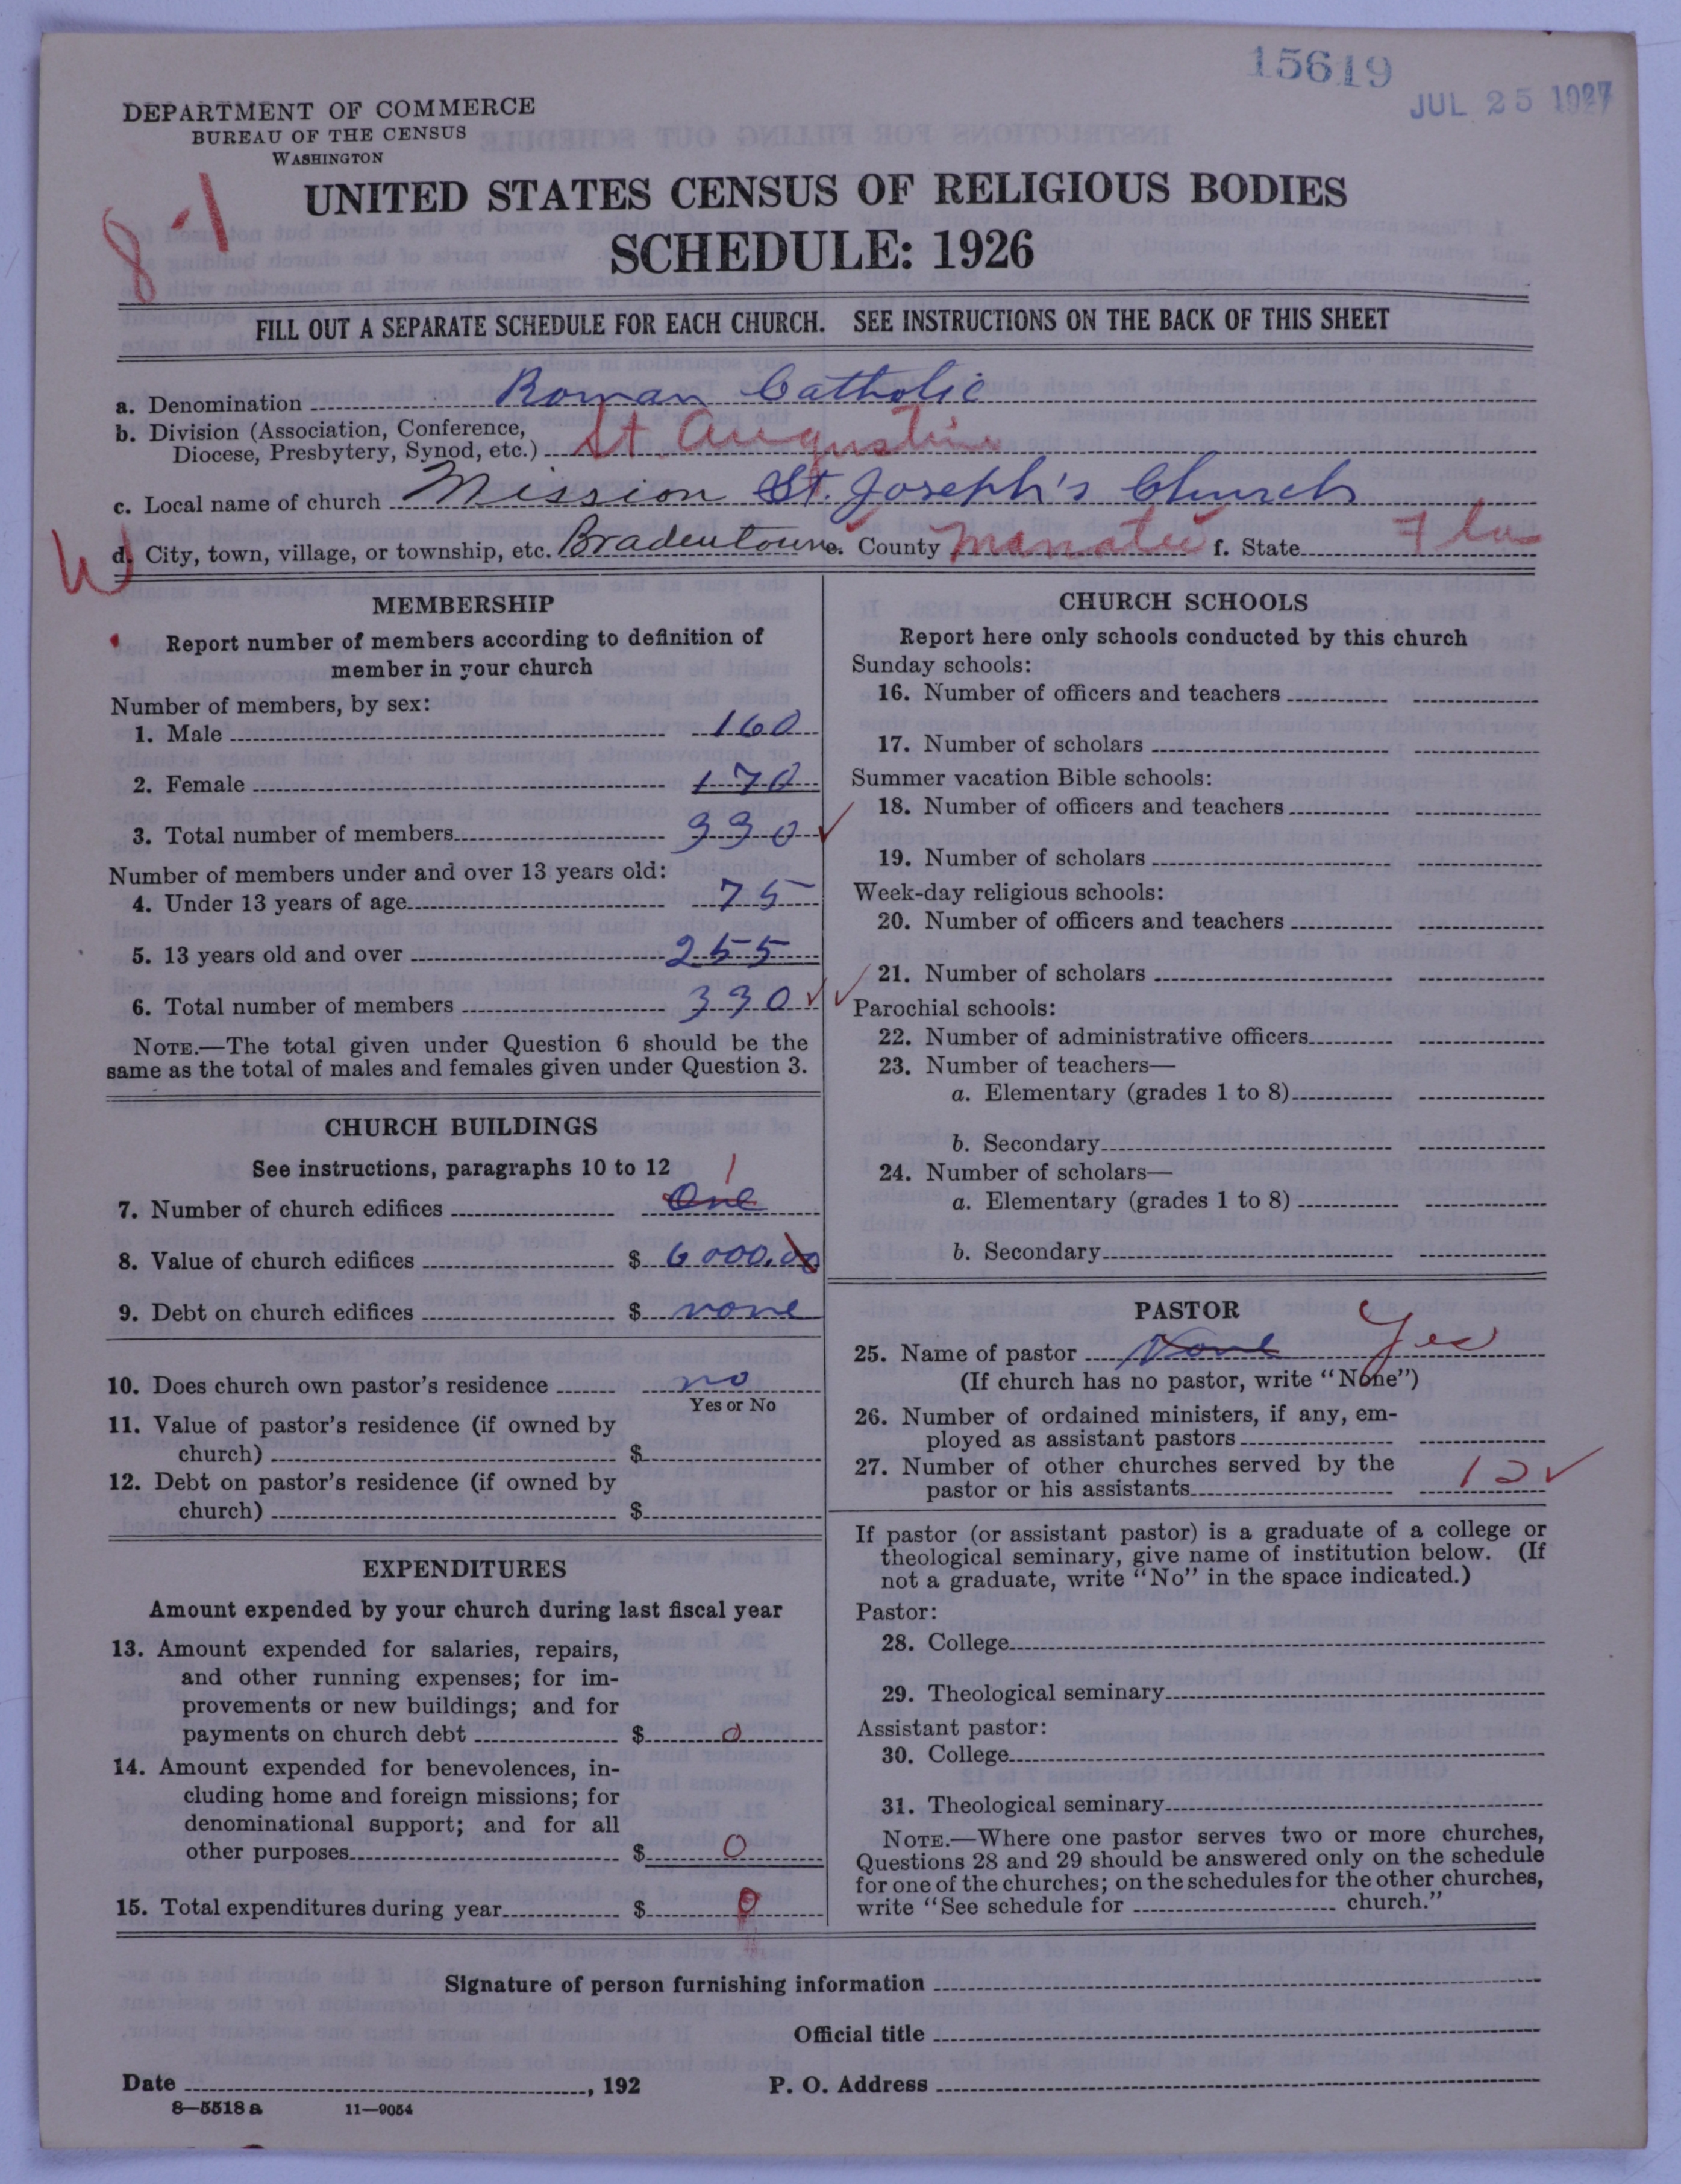 15619
JUL 25 1927
DEPARTMENT OF COMMERCE
BUREAU OF THE CENSUS
WASHINGTON
8-1
UNITED STATES CENSUS OF RELIGIOUS BODIES
SCHEDULE: 1926
FILL OUT A SEPARATE SCHEDULE FOR EACH CHURCH. SEE INSTRUCTIONS ON THE BACK OF THIS SHEET
a. Denomination Roman Catholic
b. Division (Association, Conference,
Diocese, Presbytery, Synod, etc.) St. Augustine
c. Local name of church Mission St. Joseph's Church
W
d. City, town, village, or township, etc. Bradentown e. County Manatee f. State Fla
MEMBERSHIP
Report number of members according to definition of
member in your church
Number of members, by sex:
1. Male 160
2. Female 170
3. Total number of members 330
Number of members under and over 13 years old:
4. Under 13 years of age 75
5. 13 years old and over 255
6. Total number of members 330
NOTE.—The total given under Question 6 should be the
same as the total of males and females given under Question 3.
CHURCH BUILDINGS
See instructions, paragraphs 10 to 12
1
7. Number of church edifices One
8. Value of church edifices $ 6000.00
9. Debt on church edifices $ none
10. Does church own pastor's residence no
Yes or No
11. Value of pastor's residence (if owned by
church) $
12. Debt on pastor's residence (if owned by
church) $
EXPENDITURES
Amount expended by your church during last fiscal year
13. Amount expended for salaries, repairs,
and other running expenses; for im-
provements or new buildings; and for
payments on church debt $ 0
14. Amount expended for benevolences, in-
cluding home and foreign missions; for
denominational support; and for all
other purposes $ 0
15. Total expenditures during year $ 0
CHURCH SCHOOLS
Report here only schools conducted by this church
Sunday schools:
16. Number of officers and teachers
17. Number of scholars
Summer vacation Bible schools:
18. Number of officers and teachers
19. Number of scholars
Week-day religious schools:
20. Number of officers and teachers
21. Number of scholars
Parochial schools:
22. Number of administrative officers
23. Number of teachers—
a. Elementary (grades 1 to 8)
b. Secondary
24. Number of scholars—
a. Elementary (grades 1 to 8)
b. Secondary
PASTOR
25. Name of pastor None Yes
(If church has no pastor, write "None")
26. Number of ordained ministers, if any, em-
ployed as assistant pastors
27. Number of other churches served by the
pastor or his assistants 12
If pastor (or assistant pastor) is a graduate of a college or
theological seminary, give name of institution below. (If
not a graduate, write "No" in the space indicated.)
Pastor:
28. College
29. Theological seminary
Assistant pastor:
30. College
31. Theological seminary
NOTE.—Where one pastor serves two or more churches,
Questions 28 and 29 should be answered only on the schedule
for one of the churches; on the schedules for the other churches,
write "See schedule for church."
Signature of person furnishing information
Official title
Date , 192 P. O. Address
8—5518 a 11—9054